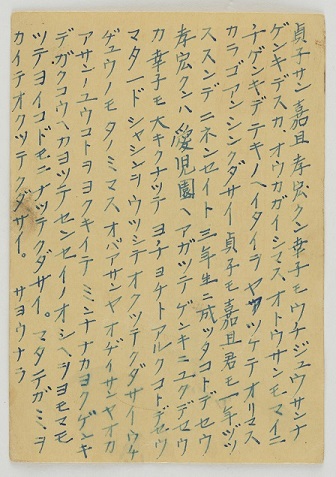 貞子サン嘉且孝宏クン幸子モウチジュウサンナ
ゲンキデスカ。オウカガイシマス。オトウサンモマイニ
チゲンキデテキノヘイタイヲヤッツケテオリマス
カラゴアンシンクダサイ 貞子モ嘉且君モ一年ヅツ
ススンデニネンセイト三年生ニ成ツタコトデセウ
孝宏クンハ愛児園ヘアガツテゲンキニユクデセウ
カ幸子モ大キクナツテヨチヨチトアルクコトデセウ
マタ一ドシャシンヲウツシテオクツテクダサイウケ
ヂュウノモタノミマスオバアサンヤオヂイサンヤオカ
アサンノユウコトヲヨクキイテミンナナカヨクゲンキ
デガクコウヘカヨツテセンセイノオシヘヲヨマモ
ツテヨイコドモニナツテクダサイ。マタテガミヲ
カイテオクツテクダサイ。 サヨウナラ